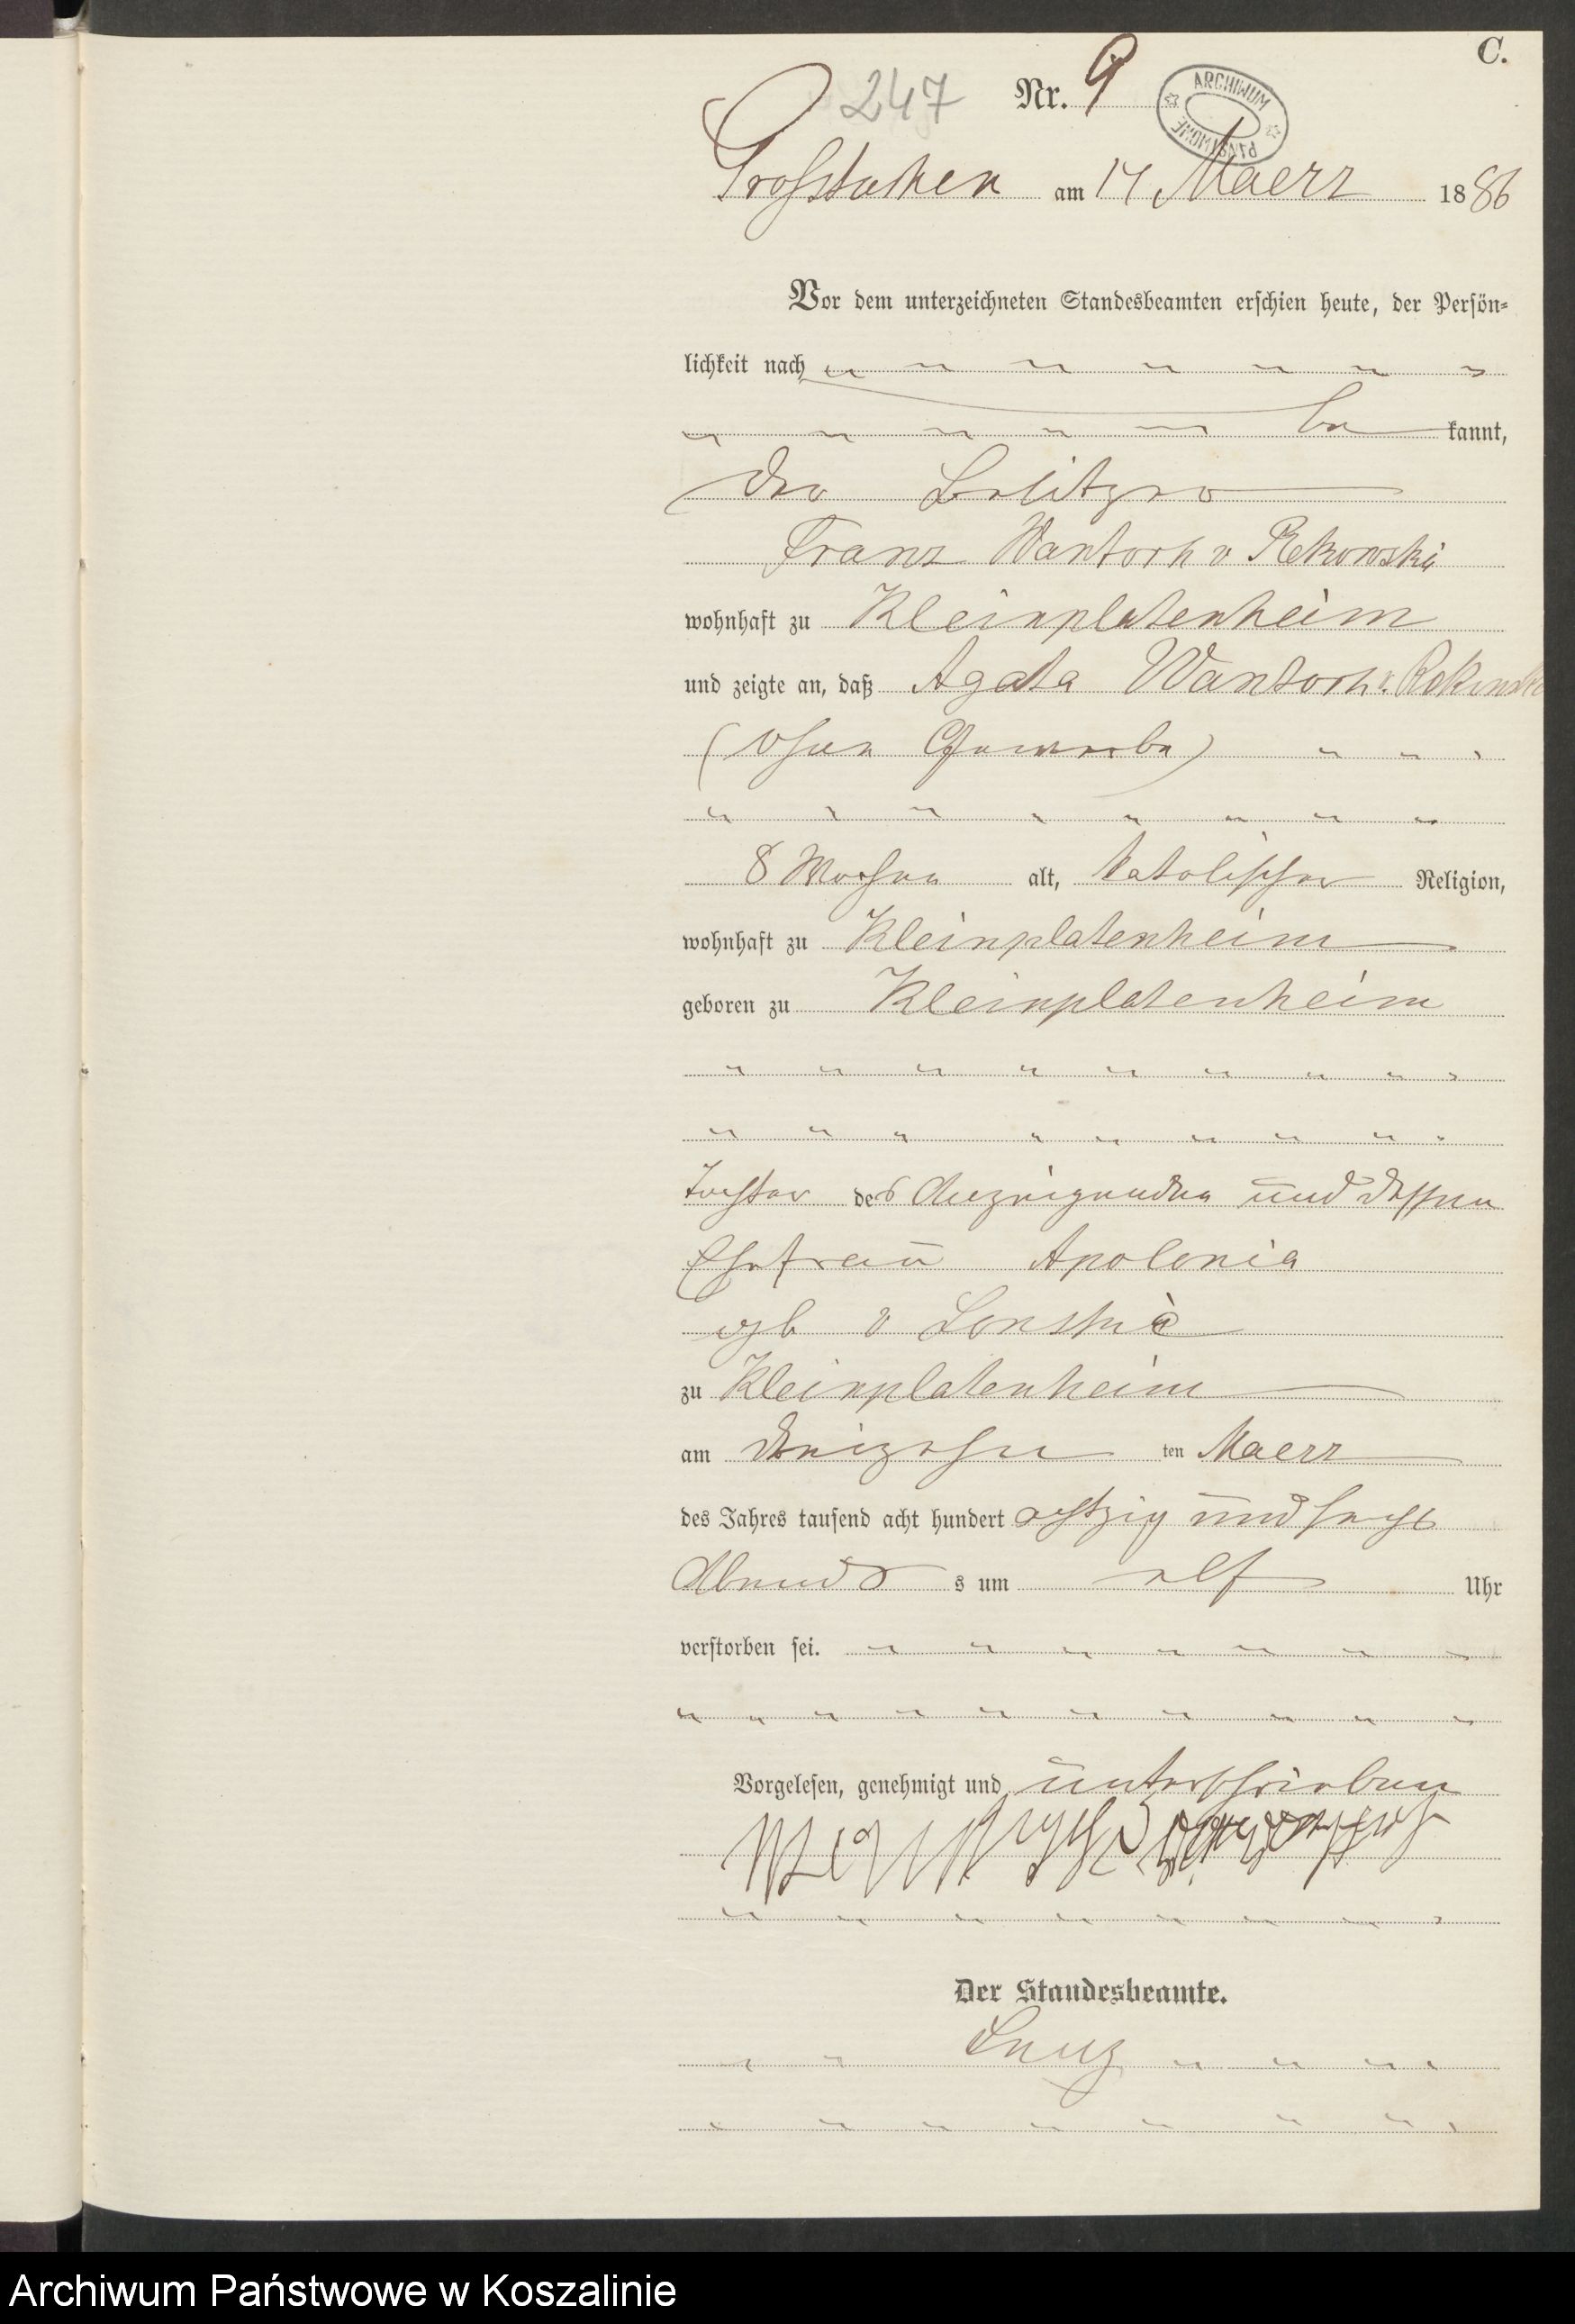 C.
247 Nr. 9
ARCHIWUM PAŃSTWOWE
Großtuchen am 14 Maerz 1886
Vor dem unterzeichneten Standesbeamten erschien heute, der Persön-
lichkeit nach
be kannt,
der Besitzer
Franz Wantoch v Rekowski
wohnhaft zu Kleinplatenheim
und zeigte an, daß Agata Wantoch v.
(ohne Gewerbe)
8 Wochen alt, katolischer Religion,
wohnhaft zu Kleinplatenheim
geboren zu Kleinplatenheim
Tochter des Anzeigenden und dessen
Ehefrau Apolonia
geb v
zu Kleinplatenheim
am dreizehn ten Maerz
des Jahres tausend acht hundert achtzig und sechs
Abend s um elf Uhr
verstorben sei.
Vorgelesen, genehmigt und unterschrieben
Der Standesbeamte.
Lenz
Archiwum Państwowe w Koszalinie